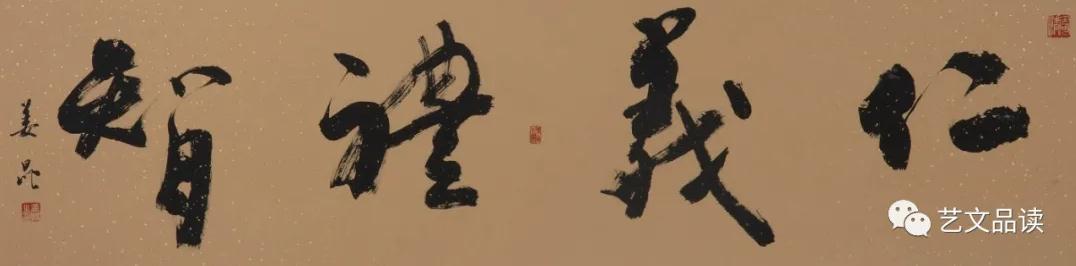 仁義禮智
姜昆
艺文品读